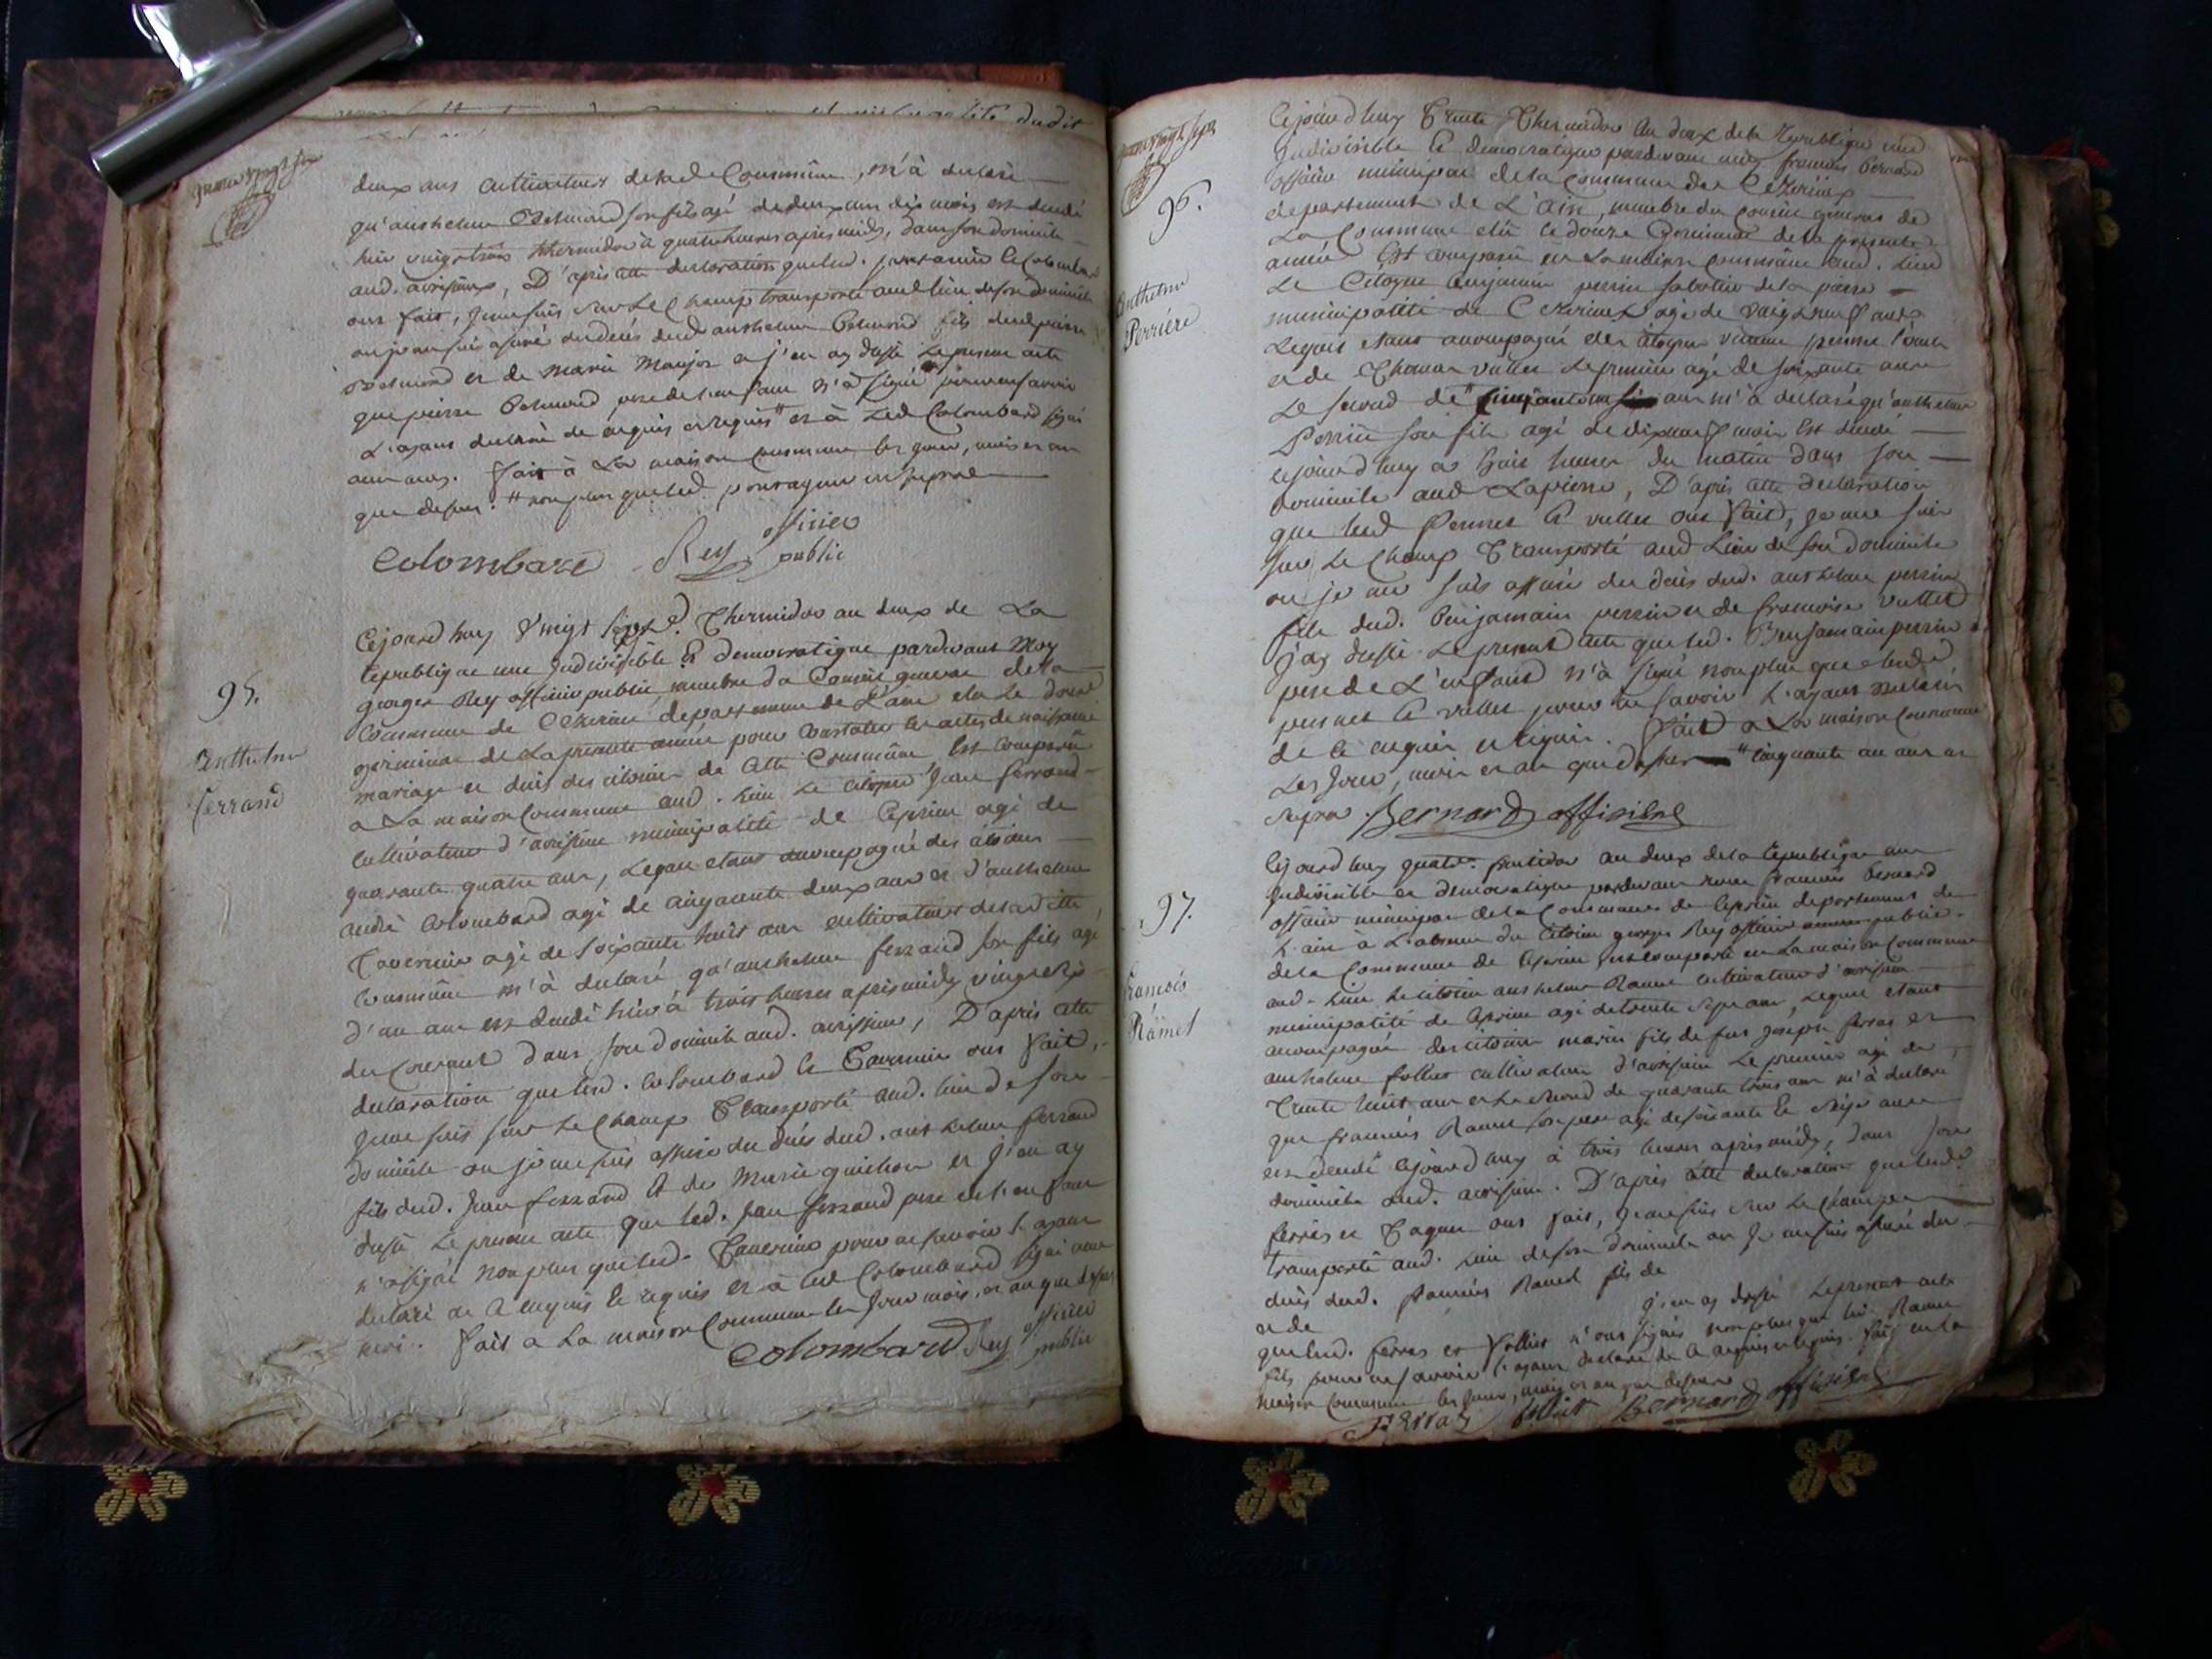 deux ans cultivateurs de lad. Commune, m'à declaré
qu'anthelme Belmond son fils agé de deux ans dix mois est decedé
hier vingt trois thermidor à quatre heures apres midy, dans son domicile
aud. avrissieux, D'apres cette declaration que led. et le Colombard
ont fait, je me suis sur Le Champ transporté aud. lieu de son domicile
ou je me suis assuré du decés dud. anthelme Belmond fils dud. pierre
Belmond et de marie et j'en ay dressé Le present acte
que pierre Belmond pere de l'enfant n'à signé pour ne savoir
L'ayant declaré de ce enquis et requis et à Led. Colombard signé
avec moy. fait à La maison Commune les jour, mois et an
que dessus. non plus que led.
Colombard Rey officier
public
95.
Anthelme
ferrand
Cejourd'huy Vingt sept Thermidor an deux de La
Republique une Indivisible Et democratique pardevant Moy
georges Rey officier public membre du Conseil general de la
Commune de Cezerieu departement de L'ain elu Le douze
germinal de La presente année pour Constater les actes de naissance
mariage et decés des citoiens de Cette Commune, Est Comparu
a La maison Commune aud. Lieu Le citoyen Jean ferrand
Cultivateur d'avrissieu municipalité de Ceserieu agé de
quarante quatre ans, Lequel etant accompagné des citoiens
andré Colombard agé de cinquante deux ans et d'anthelme
Tavernier agé de soixante huit ans cultivateurs de lad. dite
Commune m'à declaré qu'anthelme ferrand son fils agé
d'un an est decedé hier à trois heures apres midy vingt six
du Courant dans son domicile aud. avrissieu, D'apres cette
declaration que led. Colombard et Tavernier ont fait,
je me suis sur Le Champ Transporté aud. lieu de son
domicile ou je me suis assuré du decés dud. anthelme ferrand
fils dud. Jean ferrand Et de Marie et j'en ay
dressé Le present acte que led. Jean ferrand pere de l'enfant
n'a signé non plus que led. Tavernier pour ne savoir L'ayant
declaré de Ce enquis Et requis et à led. Colombard signé avec
moi. fait a La maison Commune les jour mois et an que dessus
Colombard Rey officier
public
96.
Anthelme
Perriere
Cejourd'huy Trente Thermidor An deux de la Republique une
Indivisible Et democratique pardevant moy francois Bernard
officier municipal de la Commune de Cezerieux
departement de L'ain, membre du Conseil general de
La Commune elû le douze Germinal de la presente
année Est Comparû en La maison Commune aud. Lieu
Le Citoyen Benjamin perrin sabotier de la pierre
municipalité de Cezerieux agé de Vingt neuf ans
Lequel etant accompagné des citoyens
et de Thomas vullet le premier agé de soixante ans
Le second de ans m'à declaré qu'anthelme
Perrin son fils agé de dix neuf mois Est decedé
cejourd'huy a huit heures du matin dans son
domicile aud Lapierre, D'apres cette declaration
que led Pernet Et vullet ont fait, je me suis
sur Le Champ Transporté aud Lieu de son domicile
ou je me suis assuré du decés dud. anthelme perrin
fils dud. Benjamain perrin et de francoise vullet
j'ay dressé Le present acte que led. Benjamain perrin
pere de L'enfant n'à signé non plus que lesd.
pernet Et vullet pour ne savoir L'ayant declaré
de Ce enquis et requis. Fait a La maison Commune
Les Jour, mois et an que dessus cinquante un ans
Bernard offisiere
97.
francois
Ramel
Cejourd'huy quatre fructidor an deux de la Republique une
Indivisible et democratique pardevant nous francois Bernard
officier municipal de la Commune de Ceserieu departement de
L'ain à L'absence du Citoien georges Rey officier public
de la Commune de Ceserieu est Comparû en La maison Commune
aud. Lieu Le citoien anthelme Ramel cultivateur d'avrissieu
municipalité de Ceserieu agé de trente sept ans, Lequel etant
accompagné des citoiens marin fils de feu Joseph ferras et
anthelme folliet cultivateur d'avrissieu Le premier agé de
Trente huit ans et Le second de quarante trois ans m'à declaré
que francois Ramel son pere agé de soixante Et seize ans
est decedé cejourd'huy à trois heures apres midy, dans son
domicile aud. avrissieu. D'apres cette declaration que lesd.
ferras et ont fait, je me suis sur Le Champ
transporté aud. Lieu de son domicile ou Je me suis assuré du
decés dud. francois Ramel fils de
et de j'en ay dressé Le present acte
que led. ferras et folliet n'ont signé non plus que led. Ramel
fils pour ne savoir L'ayant declaré de Ce enquis et requis. fait en la
maison Commune les jour, mois et an que dessus
Ferras folliet Bernard offisiere